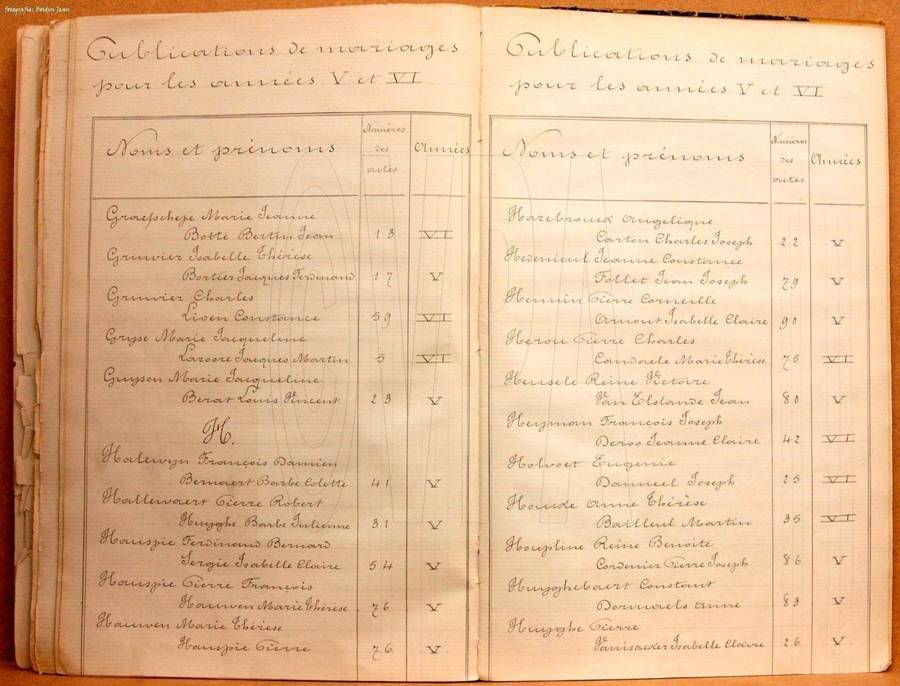 fotografie: Boidyn Jean
Publications de mariages
pour les années V et VI
Noms et prénoms
Numéros
des
actes
Années
Graefschepe Marie Jeanne
Botté Bertin Jean 13 VI
Gruwier Isabelle Thérèse
Bortier Jacques Ferdinand 17 V
Gruwier Charles
Liven Constance 59 VI
Gryse Marie Jacqueline
Lazoore Jacques Martin 5 VI
Guyson Marie Jacqueline
Berat Louis Vincent 23 V
H.
Halewyn François Damien
Bernaert Barbe Colette 41 V
Hallewaert Pierre Robert
Huyghe Barbe Julienne 31 V
Hauspie Ferdinand Bernard
Sergie Isabelle Claire 54 V
Hauspie Pierre François
Hauwen Marie Thérèse 76 V
Hauwen Marie Thérèse
Hauspie Pierre 76 V
Publications de mariages
pour les années V et VI
Noms et prénoms
Numéros
des
actes
Années
Hazebrouck Angelique
Carton Charles Joseph 22 V
Hedenieul Jeanne Constance
Follet Jean Joseph 79 V
Hennin Pierre Corneille
Arnout Isabelle Claire 90 V
Herou Pierre Charles
Candaele Marie Thérèse 75 VI
Heusele Reine Victoire
Van Elslande Jean 80 V
Heyman François Joseph
Deroo Jeanne Claire 42 VI
Holvoet Eugenie
Danneel Joseph 25 VI
Houcke Anne Thérèse
Bailleul Martin 35 VI
Houpline Reine Benoite
Cordenier Pierre Joseph 86 V
Huyghebaert Constant
Dormaels Anne 83 V
Huyghe Pierre
Vanisacker Isabelle Claire 26 V